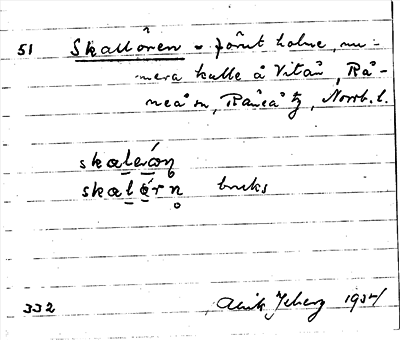 51 Skallören - förut holme, nu-
mera kulle å Vitån, Rå-
neå sn, Råneå tg, Norrb. l.
skalerön
skalörn bruks
332 1934